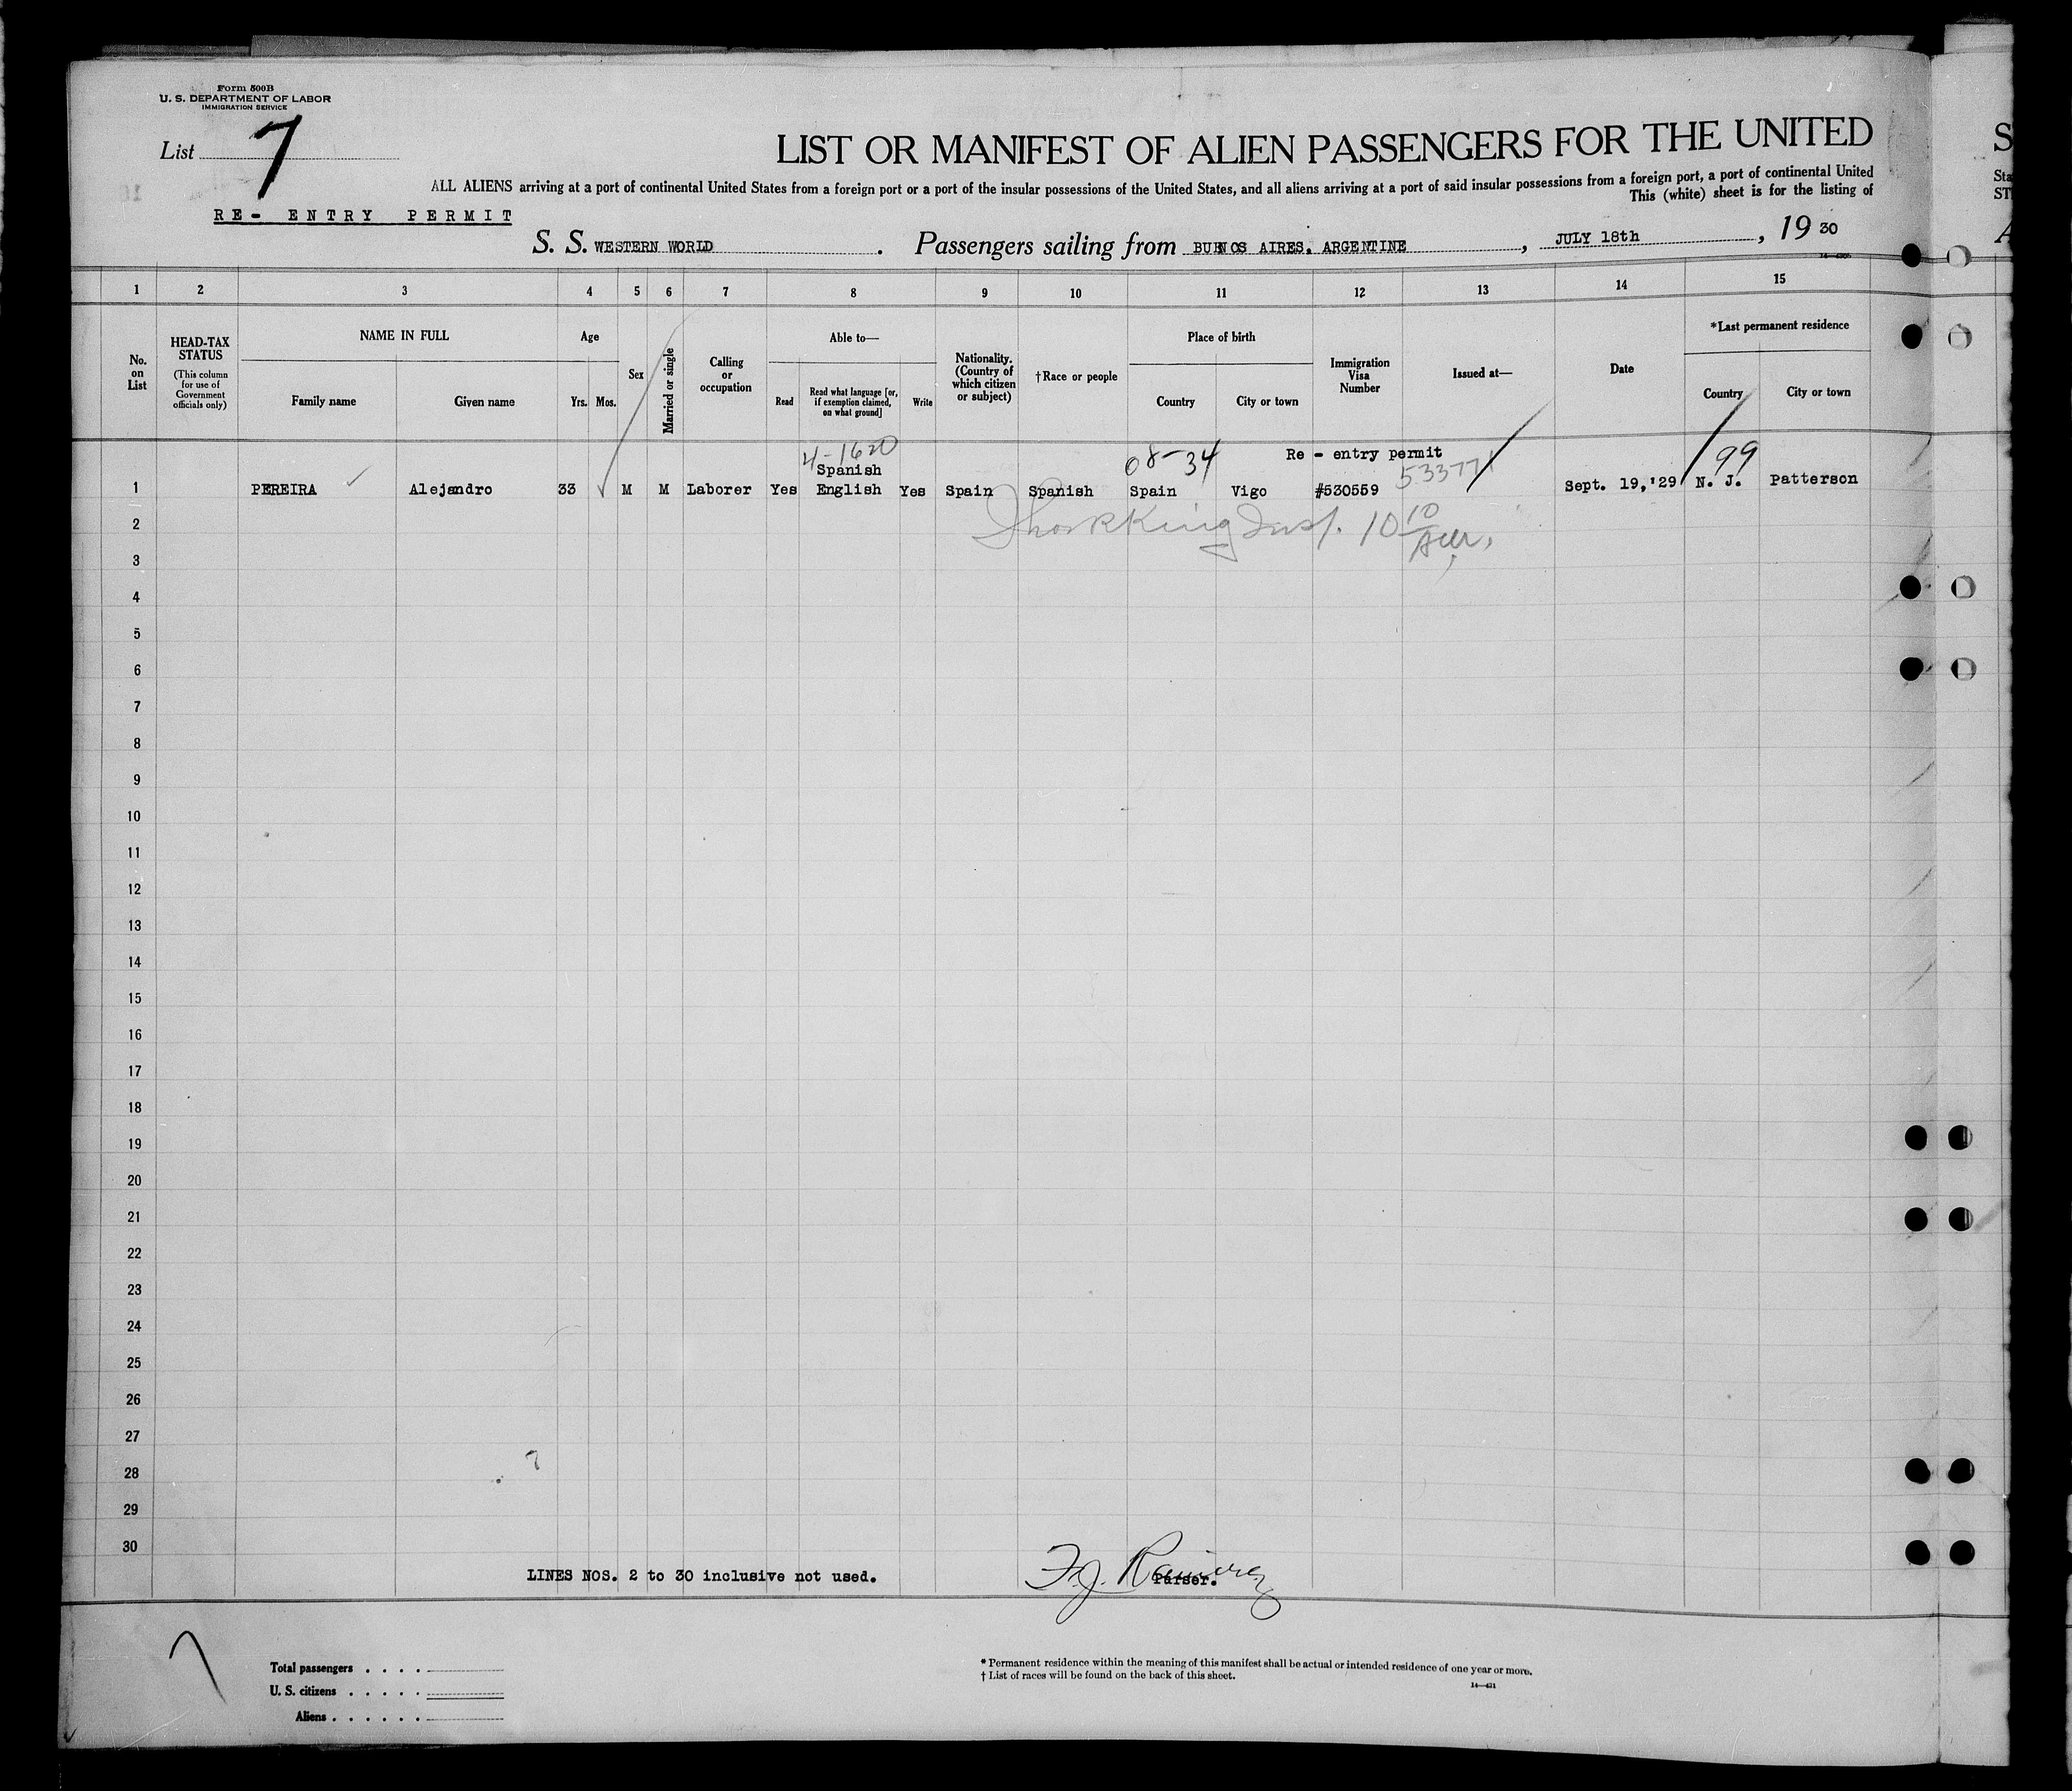 Form 500B
U. S. DEPARTMENT OF LABOR
IMMIGRATION SERVICE
List 7
LIST OR MANIFEST OF ALIEN PASSENGERS FOR THE UNITED
ALL ALIENS arriving at a port of continental United States from a foreign port or a port of the insular possessions of the United States, and all aliens arriving at a port of said insular possessions from a foreign port, a port of continental United
This (white) sheet is for the listing of
RE- ENTRY PERMIT
S. S. WESTERN WORLD . Passengers sailing from BUENOS AIRES, ARGENTINE , JULY 18th , 19 30
1 2 3 4 5 6 7 8 9 10 11 12 13 14 15
No. on List
HEAD-TAX STATUS
(This column for use of Government officials only)
NAME IN FULL
Family name Given name
Age
Yrs. Mos.
Sex
Married or single
Calling or occupation
Able to—
Read
Read what language [or, if exemption claimed, on what ground]
Write
Nationality. (Country of which citizen or subject)
†Race or people
Place of birth
Country City or town
Immigration Visa Number
Issued at—
Date
*Last permanent residence
Country City or town
4-1620
08-34
Re - entry permit
533771
99
Spanish
1 PEREIRA Alejandro 33 M M Laborer Yes English Yes Spain Spanish Spain Vigo #530559 Sept. 19,'29 N. J. Patterson
2
3
4
5
6
7
8
9
10
11
12
13
14
15
16
17
18
19
20
21
22
23
24
25
26
27
28
29
30
LINES NOS. 2 to 30 inclusive not used.
F.J. Ramirez
Purser.
7
Total passengers
U. S. citizens
Aliens
* Permanent residence within the meaning of this manifest shall be actual or intended residence of one year or more.
† List of races will be found on the back of this sheet.
14—431